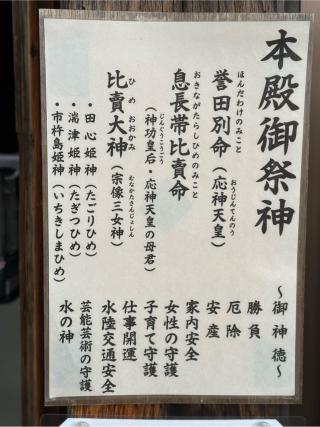 本殿御祭神
ほんだわけのみこと
誉田別命（応神天皇）
おうじんてんのう
おきながたらしひめのみこと
息長帯比賣命
（神功皇后・応神天皇の母君）
じんぐうこうごう
ひめおおかみ
比賣大神（宗像三女神）
むなかたさんじょしん
・田心姫神（たごりひめ）
・湍津姫神（たぎつひめ）
・市杵島姫神（いちきしまひめ）
～御神徳～
勝負
厄除
安産
家内安全
女性の守護
子育て守護
仕事開運
水陸交通安全
芸能芸術の守護
水の神